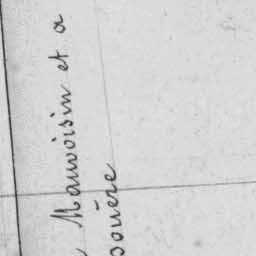 Mauvoisin et a
ouère